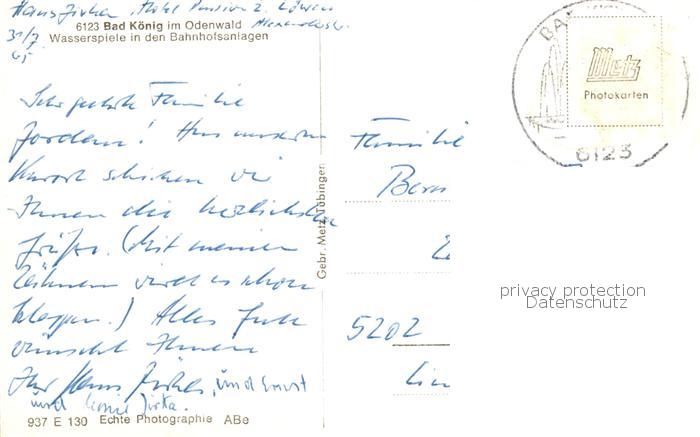 Hans Jirka, Hotel Pension z. Löwen
6123 Bad König im Odenwald
Wasserspiele in den Bahnhofsanlagen
31/7
65
BA
Metz
Photokarten
6123
Sehr geehrte Familie
Jordern! Aus unserem
Kurort schicken wir
Ihnen die herzlichsten
Grüße. (Mit meinen
Zähnen wird es schon
klappen.) Alles Gute
wünscht Ihnen
Ihr Hans Jirka, und Ernst
und Jirka.
Gebr. Metz, Tübingen
Familie
Bern
5202
Lin
privacy protection
Datenschutz
937 E 130 Echte Photographie ABe